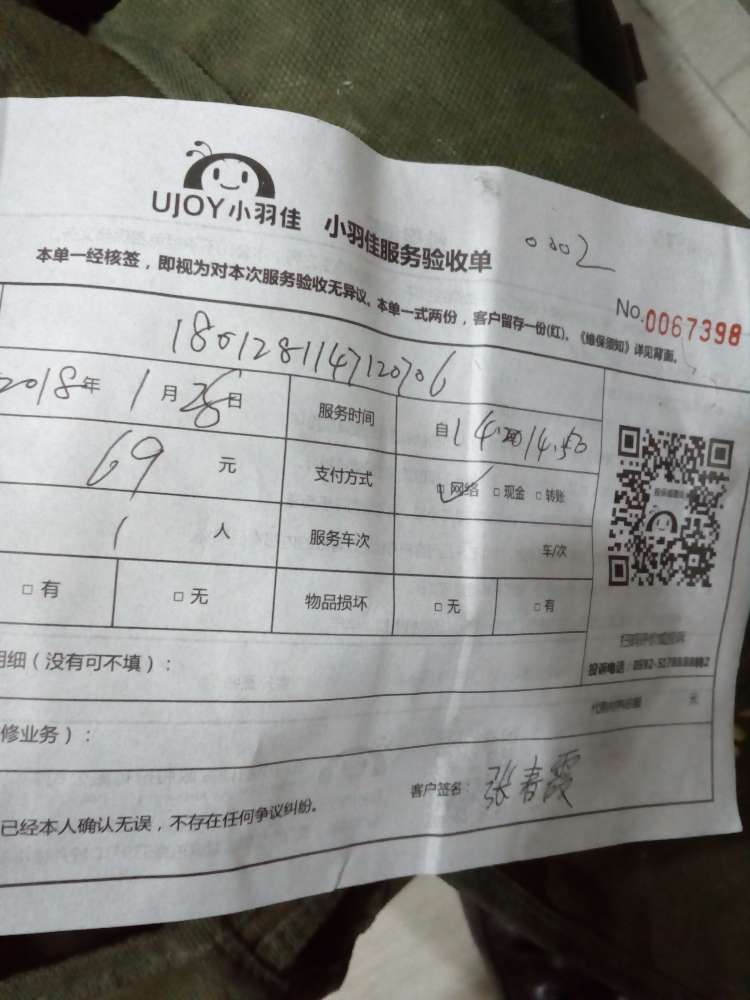 UJOY小羽佳 小羽佳服务验收单
0302
本单一经核签，即视为对本次服务验收无异议。本单一式两份，客户留存一份(红)。《维保须知》详见背面。
No.0067398
1801281147120706
2018年1月26日 服务时间 自14:20 14.50
69元 支付方式 网络 □现金 □转账
1人 服务车次 车/次
□有 □无 物品损坏 □无 □有
明细（没有可不填）：
投诉电话：
元
修业务）：
客户签名：张春霞
已经本人确认无误，不存在任何争议纠纷。